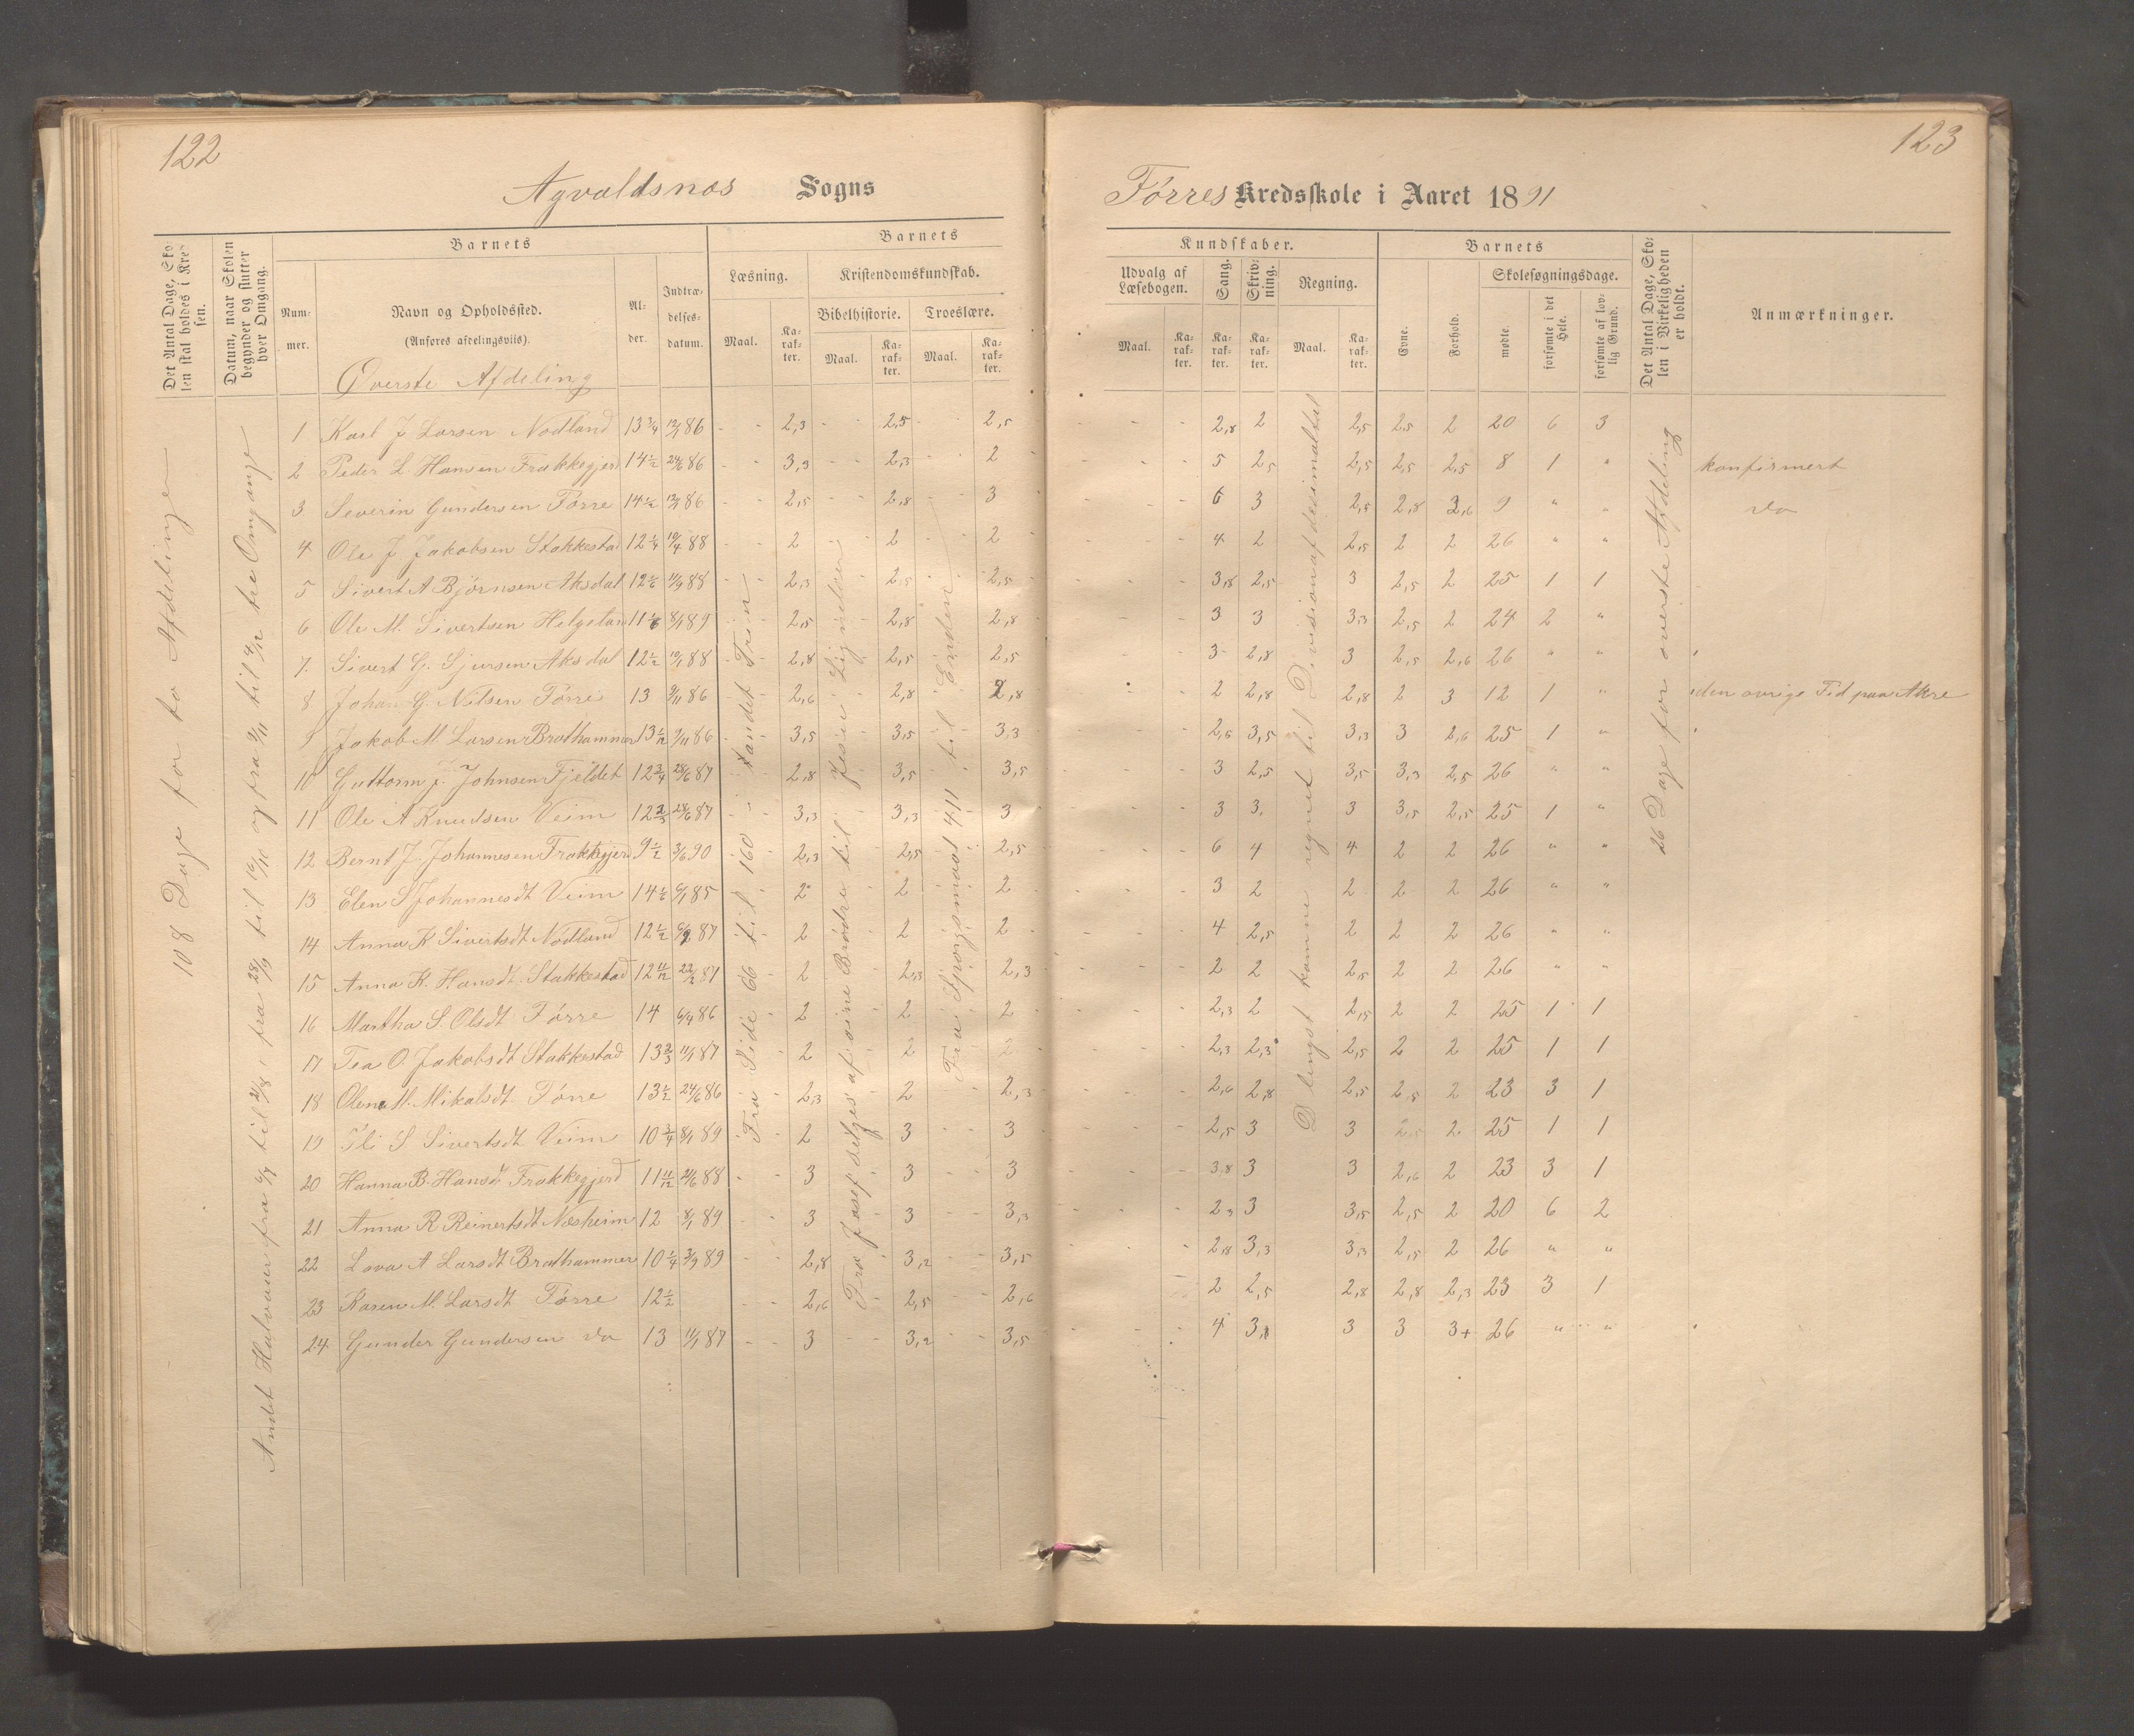 122
123
Agvaldsnæs Sogns
Førres Kredsskole i Aaret 1891
Det Antal Dage, Skolen skal holdes i Kredsen.
Datum, naar Skolen begynder og slutter hver Omgang.
Barnets
Nummer.
Navn og Opholdssted.
(Anføres afdelingsviis).
Øverste Afdeling
Alder.
Indtrædelsesdatum.
Barnets
Læsning.
Kristendomskundskab.
Bibelhistorie.
Troeslære.
Maal.
Karakter.
Maal.
Karakter.
Maal.
Karakter.
Kundskaber.
Udvalg af Læsebogen.
Sang.
Skrivning.
Regning.
Maal.
Karakter.
Karakter.
Karakter.
Maal.
Karakter.
Barnets
Evne.
Forhold.
Skolesøgningsdage.
mødte.
forsømte i det Hele.
forsømte af lovlig Grund.
Det Antal Dage, Skolen i Virkeligheden er holdt.
Anmærkninger.
108 Dage for to Afdelinger
Fra Side 66 til 160 - Landet Trin
Fra Josef sælges af sine Brødre til Jesu Lignelser
Fra Spørgsmaal 411 til Enden
D længst komne regnet til Division af decimaltal
26 Dage for øverste Afdeling
1 Karl J Larsen Nodland 13 3/4 12/1 86 - - 2,3 - - 2,5 - - 2,5 - - 2,8 2 2,5 2,5 2 20 6 3
2 Peder L. Hansen Frakkegjerd 14 1/2 24/6 86 - - 3,3 - - 2,3 - - 2 - - 5 2,5 2,5 2,5 2,5 8 1 " konfirmert
3 Severin Gundersen Førre 14 1/2 12/1 86 - - 2,5 - - 2,8 - - 3 - - 6 3 2,5 2,8 2,6 9 " " do
4 Ole J. Jakobsen Stakkestad 12 1/4 19/4 88 - - 2 - 2 - 2 - - 4 2 2,5 2 2 26 " "
5 Sivert A Bjørnsen Aksdal 12 1/6 11/9 88 - - 2,3 - 2,5 - 2,5 - - 3,8 2,5 3 2,5 2 25 1 1
6 Ole M. Sivertsen Helgeland 11 1/6 8/1 89 - 2,5 - 2,8 - 2,8 - - 3 3 3,3 2,5 2 24 2 "
7. Sivert G. Sjursen Aksdal 12 1/2 10/1 88 - 2,8 - 2,5 - 2,5 - - 3 2,8 3 2,5 2,6 26 " "
8 Johan G. Nilsen Førre 13 9/11 86 - 2,6 - 2,8 - 2,8 - - 2 2,8 2,8 2 3 12 1 " den øvrige Tid paa Akre
9 Jakob M Larsen Brathammer 13 1/12 9/11 86 - 3,5 - 3,5 - 3,3 - - 2,6 3,5 3,3 3 2,6 25 1 "
10 Guttorm J. Johnsen Fjeldet 12 3/4 28/6 87 - 2,8 - 3,5 - 3,5 - - 3 2,5 3,5 3,3 2,5 26 " "
11 Ole A Knudsen Veim 12 2/3 28/6 87 - 3,3 - 3,3 - 3 - - 3 3. 3 3,5 2,5 25 1 "
12 Bernt J. Johannesen Frakkegjerd 9 1/2 3/6 90 - 2,3 - 2,5 - 2,5 - - 6 4 4 2 2 26 " "
13 Elen S Johannesdt Veim 14 1/6 6/1 85 - 2 - 2 - 2 - - 3 2 2 2 2 26 " "
14 Anna K Sivertsdt Nodland 12 1/2 6/9 87 - 2 - 2 - 2 - - 4 2,5 2 2 2 26 " "
15 Anna K. Hansdt. Stakkestad 12 11/12 22/2 87 - 2 - 2,3 - 2,3 - - 2 2 2,5 2 2 26 " "
16 Martha S Olsdt Førre 14 6/9 86 - 2 - 2 - 2 - - 2,3 2 2,5 2 2 25 1 1
17 Tea O. Jakobsdt Stakkestad 13 2/3 11/1 87 - 2 - 2 - 2 - - 2,3 2,3 2,5 2 2 25 1 1
18 Olena M. Mikalsdt. Førre 13 1/2 24/6 86 - 2,3 - 2 - 2,3 - - 2,6 2,8 2,5 2,5 2 23 3 1
19 Ili S Sivertsdt Veim 10 3/4 8/1 89 - 2 3 3 - - 2,5 3 3 2,5 2 25 1 1
20 Hanna B. Hansdt Frakkegjerd 11 11/12 2/6 88 - 3 - 3 - 3 - - 3,8 3 3 2,6 2 23 3 1
21 Anna R Reinertsdt Næsheim 12 8/1 89 - - 3 - 3 - - 3,3 - - 2,3 3 3,5 2,5 2 20 6 2
22 Lova A Larsdt Brathammer 10 1/4 3/9 89 - - 2,8 - 3,2 - - 3,5 - - 2,8 3,3 3,3 2,5 2 26 " "
23 Karen M. Larsdt Førre 12 1/2 - - 2,6 - 2,5 - - 2,6 2 2,5 2,8 2,8 2,3 23 3 1
24 Gunder Gundersen do 13 11/1 87 - - 3 - - 3,2 - - 3,5 - - 4 3,1 3 3 3+ 26 " "